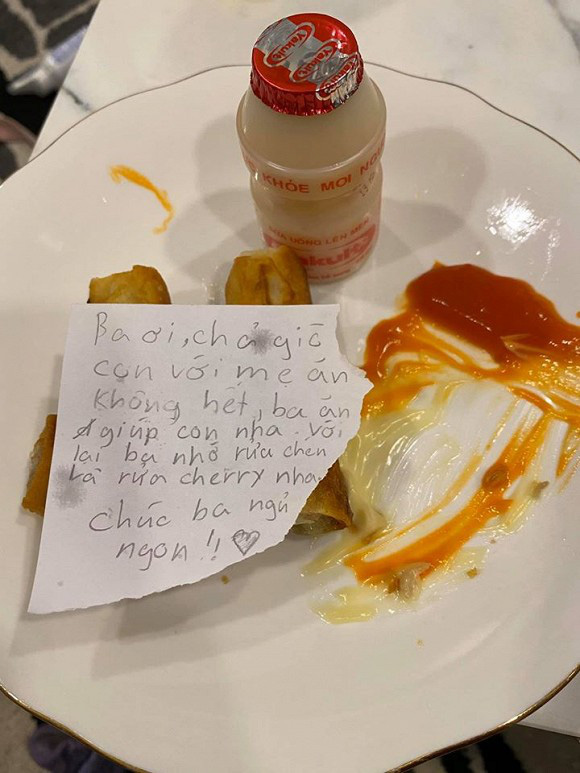 Yakult
Yakult
KHỎE MỌI NG
UA UỐNG LÊN MEN
Yakult
Ba ơi, chả giò
con với mẹ ăn
không hết, ba ăn
giúp con nha. Với
lại ba nhớ rửa chén
và rửa cherry nha.
chúc ba ngủ
ngon!! ♡